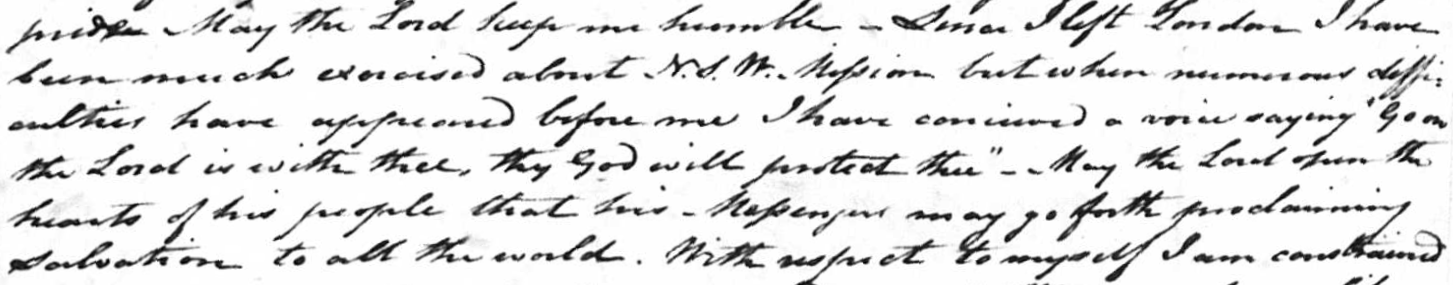 pride May the Lord keep me humble - Since I left London I have
been much exercised about N.S.W. Mission but when numerous diffi-
culties have appeared before me I have conceived a voice saying "Go on
the Lord is with thee, thy God will protect thee" - May the Lord open the
hearts of his people that his Messengers may go forth proclaiming
salvation to all the world. With respect to myself I am constrained